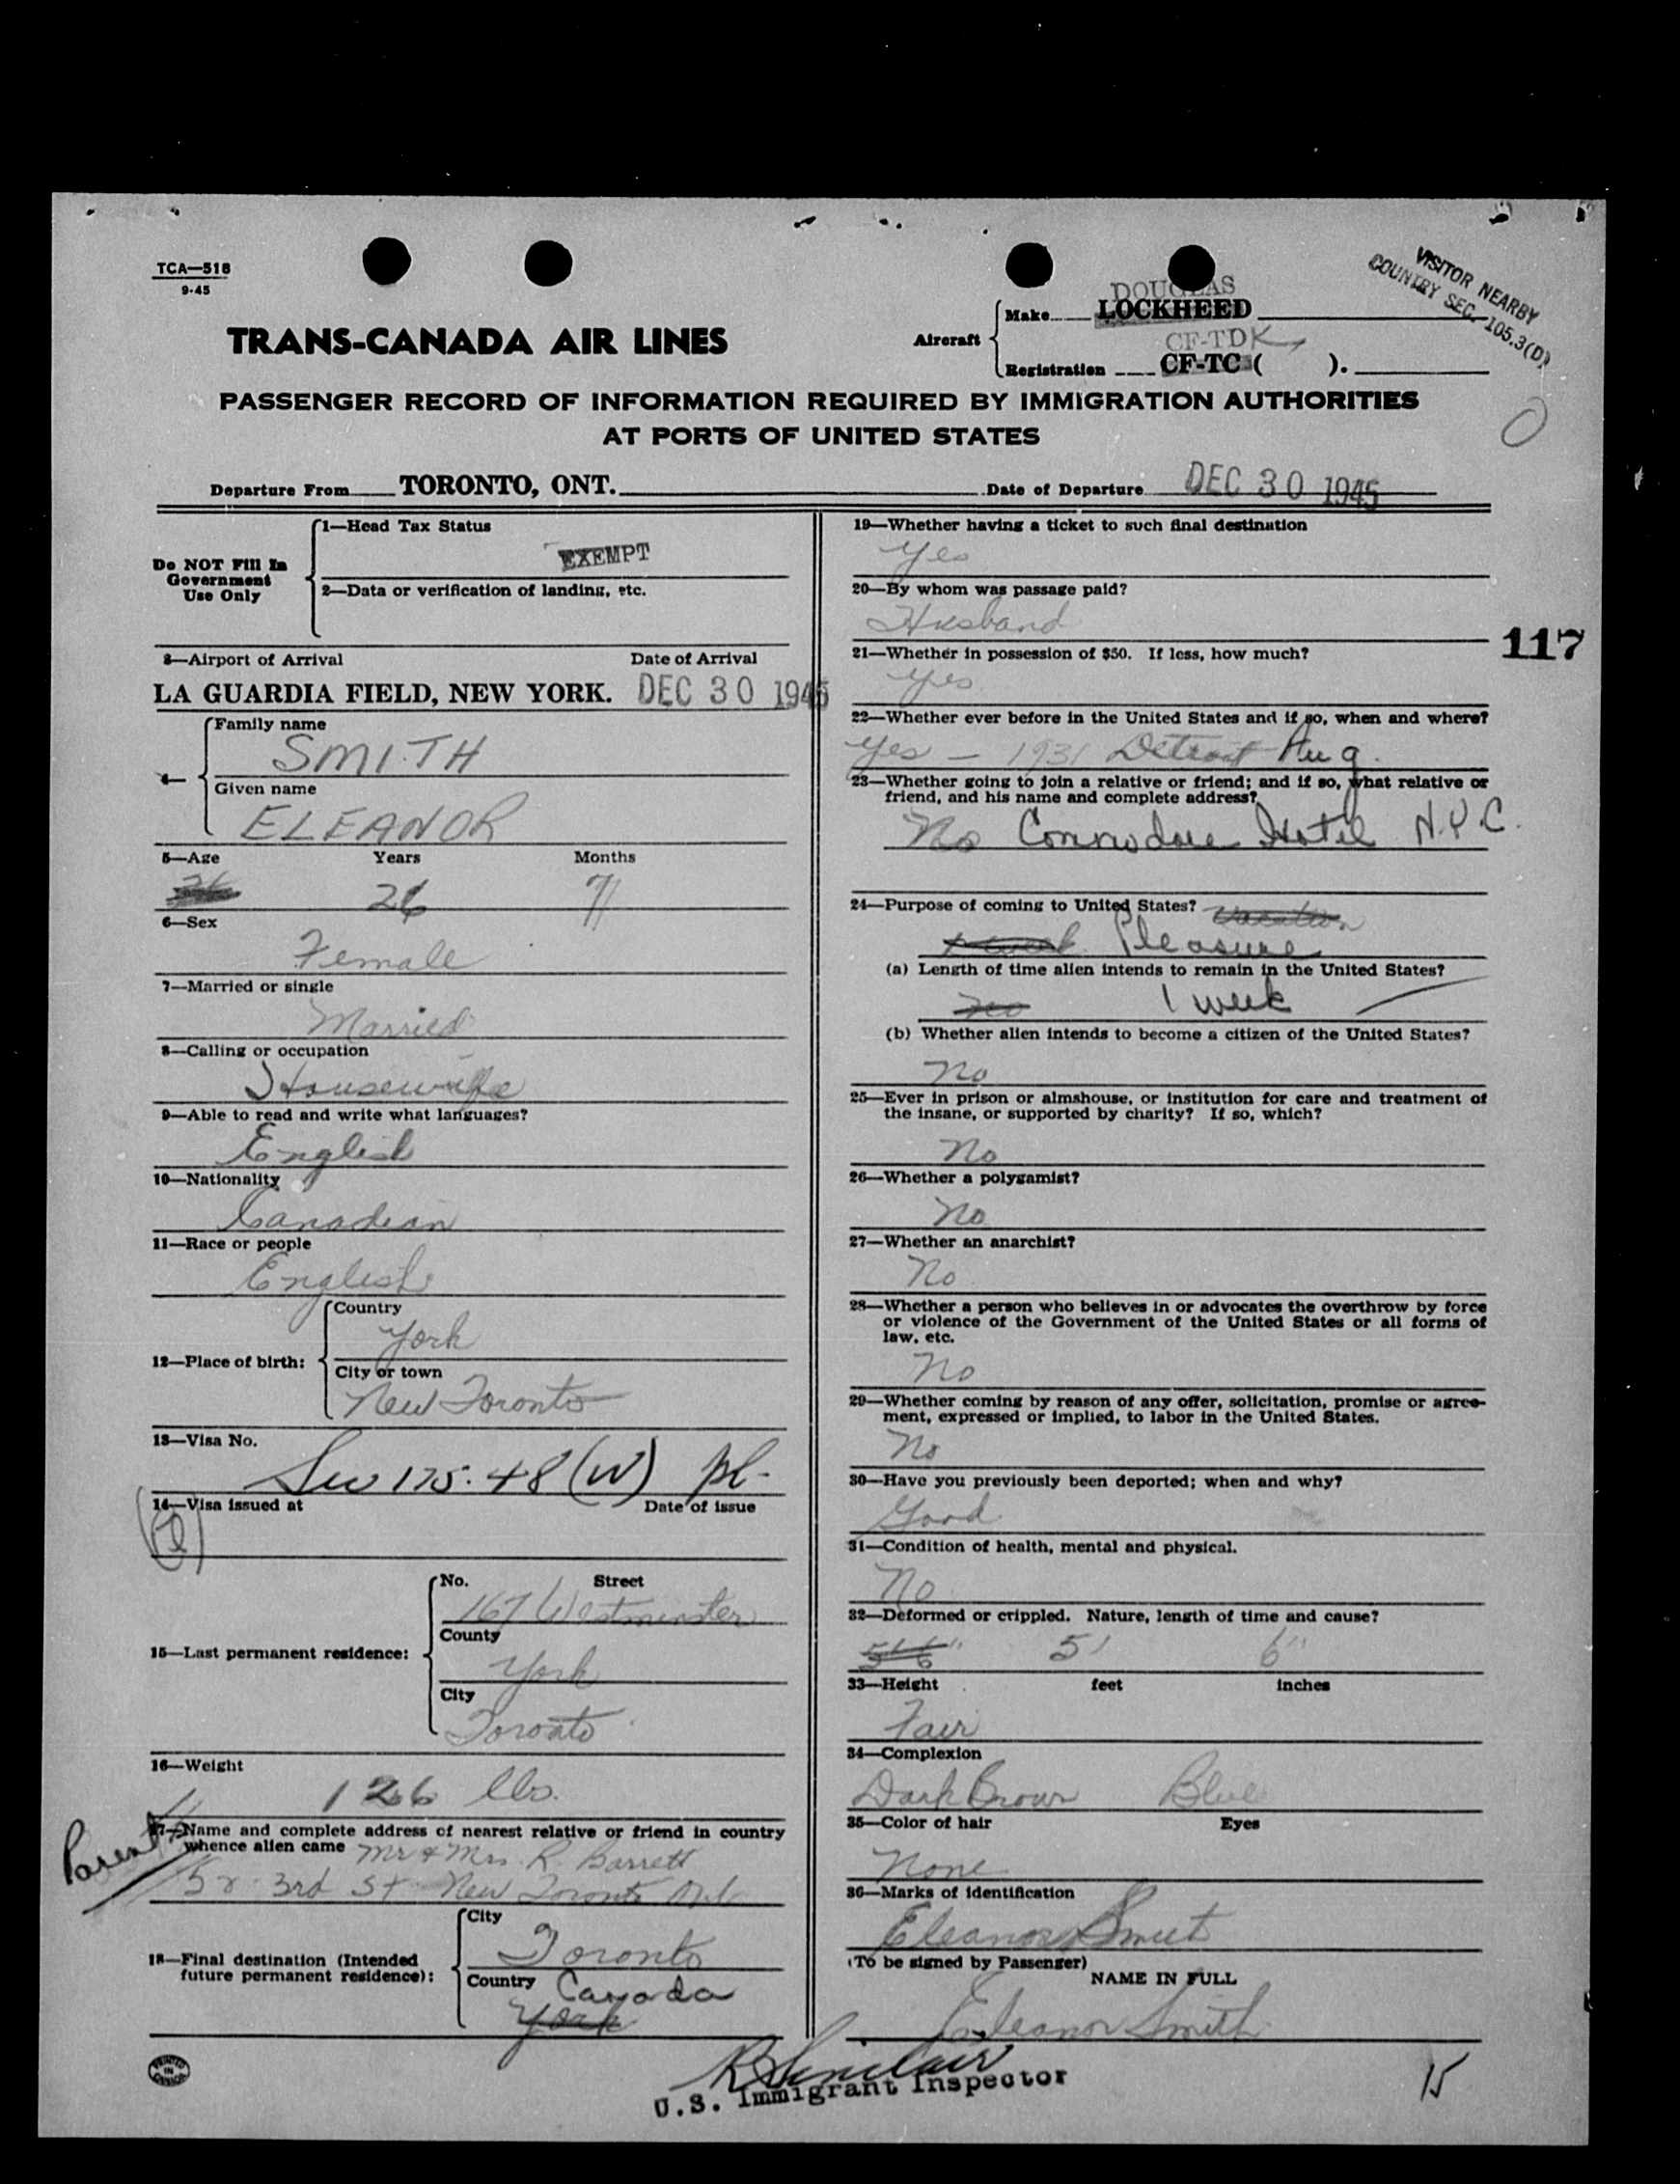 TCA—518
9-45
VISITOR NEARBY
COUNTRY SEC. 105.3(D)
TRANS-CANADA AIR LINES
Aircraft
DOUGLAS
Make LOCKHEED
CF-TDK
Registration CF-TC ( ).
PASSENGER RECORD OF INFORMATION REQUIRED BY IMMIGRATION AUTHORITIES
AT PORTS OF UNITED STATES
Departure From TORONTO, ONT. Date of Departure DEC 30 1945
Do NOT Fill In
Government
Use Only
1—Head Tax Status
EXEMPT
2—Data or verification of landing, etc.
3—Airport of Arrival Date of Arrival
LA GUARDIA FIELD, NEW YORK. DEC 30 1945
4—
Family name
SMITH
Given name
ELEANOR
5—Age Years Months
26 7
6—Sex
Female
7—Married or single
Married
8—Calling or occupation
Housewife
9—Able to read and write what languages?
English
10—Nationality
Canadian
11—Race or people
English
12—Place of birth:
Country
York
City or town
New Toronto
13—Visa No.
Sec 175.48 (W) pl-
14—Visa issued at Date of issue
15—Last permanent residence:
No. Street
167 Westminster
County
York
City
Toronto
16—Weight
126 lbs.
Parents
17—Name and complete address of nearest relative or friend in country
whence alien came Mr & Mrs. R. Barrett
3rd St New Toronto Ont
18—Final destination (Intended
future permanent residence):
City
Toronto
Country Canada
York
PRINTED
IN
CANADA
19—Whether having a ticket to such final destination
Yes
20—By whom was passage paid?
Husband
117
21—Whether in possession of $50. If less, how much?
Yes
22—Whether ever before in the United States and if so, when and where?
Yes — 1931 Detroit Aug.
23—Whether going to join a relative or friend; and if so, what relative or
friend, and his name and complete address?
No Commodore Hotel N.Y.C.
24—Purpose of coming to United States? Vacation
Pleasure
(a) Length of time alien intends to remain in the United States?
No 1 week
(b) Whether alien intends to become a citizen of the United States?
No
25—Ever in prison or almshouse, or institution for care and treatment of
the insane, or supported by charity? If so, which?
No
26—Whether a polygamist?
No
27—Whether an anarchist?
No
28—Whether a person who believes in or advocates the overthrow by force
or violence of the Government of the United States or all forms of
law, etc.
No
29—Whether coming by reason of any offer, solicitation, promise or agree-
ment, expressed or implied, to labor in the United States.
No
30—Have you previously been deported; when and why?
Good
31—Condition of health, mental and physical.
No
32—Deformed or crippled. Nature, length of time and cause?
5'6" 5' 6"
33—Height feet inches
Fair
34—Complexion
Dark Brown Blue
35—Color of hair Eyes
None
36—Marks of identification
Eleanor Smith
(To be signed by Passenger)
NAME IN FULL
Eleanor Smith
R Sinclair
U.S. Immigrant Inspector
15